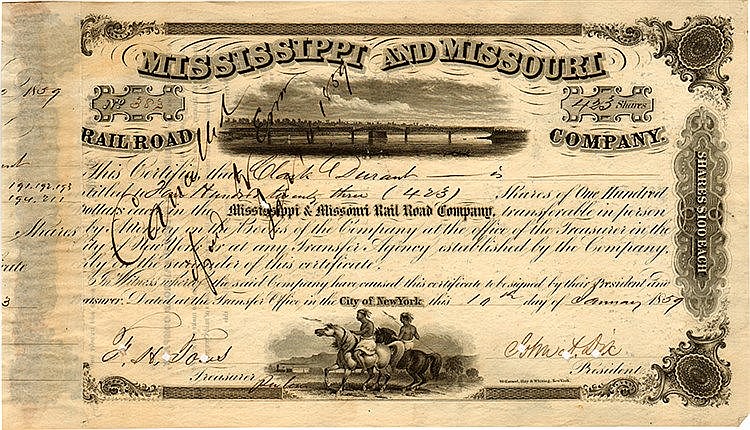 MISSISSIPPI AND MISSOURI
RAIL ROAD COMPANY.
No. 382
423 Shares
1859
1859
This Certifies that Clark & Durant is
entitled to Four Hundred twenty three (423) Shares of One Hundred
Dollars each in the Mississippi & Missouri Rail Road Company, transferable in person
or by Attorney on the Books of the Company at the office of the Treasurer in the
City of New York or at any Transfer Agency established by the Company,
only on the surrender of this certificate.
In Witness whereof the said Company have caused this certificate to be signed by their President and
Treasurer. Dated at the Transfer Office in the City of New York this 10th day of January 1859
Cancelled
191.192.193
194.211
Shares
SHARES $100 EACH
F. H. Tows
Treasurer
John A. Dix
President.
Wellstood, Hay & Whiting, New York.